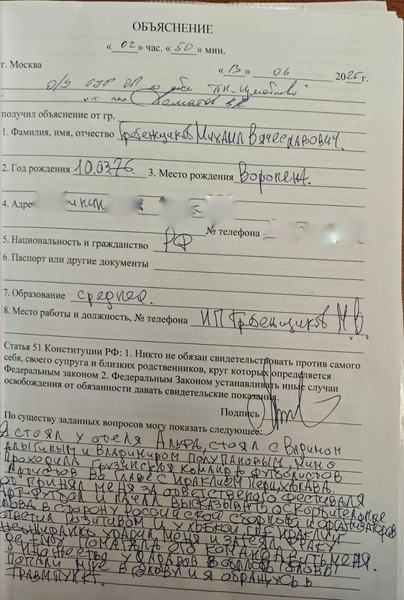 ОБЪЯСНЕНИЕ
« 02 » час. « 50 » мин.
г. Москва « 13 » 06 2025г.
О/У ОУР ОП
получил объяснение от гр.
1. Фамилия, имя, отчество Гребенщиков Михаил Вячеславович.
2. Год рождения 10.0376. 3. Место рождения Воронеж.
4. Адре
№ телефона
5. Национальность и гражданство РФ
6. Паспорт или другие документы
7. Образование среднее.
8. Место работы и должность, № телефона ИП Гребенщиков М.В.
Статья 51 Конституции РФ: 1. Никто не обязан свидетельствовать против самого
себя, своего супруга и близких родственников, круг которых определяется
Федеральным законом 2. Федеральным Законом устанавливать иные случаи
освобождения от обязанности давать свидетельские показания.
Подпись
По существу заданных вопросов могу показать следующее:
Я стоял у отеля Альфа, стоял с
и Владимиром мимо
проходила грузинская команда футболистов
Артистов во главе с Ираклием
он принял меня за ответственного фестиваля
Арт-футбол и начал высказывать оскорбительные
слова в сторону российской сборной и организаторов
ответил позитивом и улыбкой Ираклий
ударил меня и затеял драку
его команда бить меня.
множество ударов в область головы
попали мне в голову и я обращусь в
травмпункт.